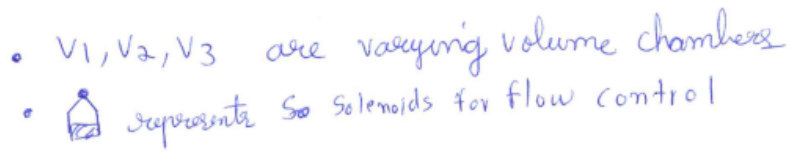 • V1, V2, V3 are varying volume chambers
• represents So Solenoids for flow control